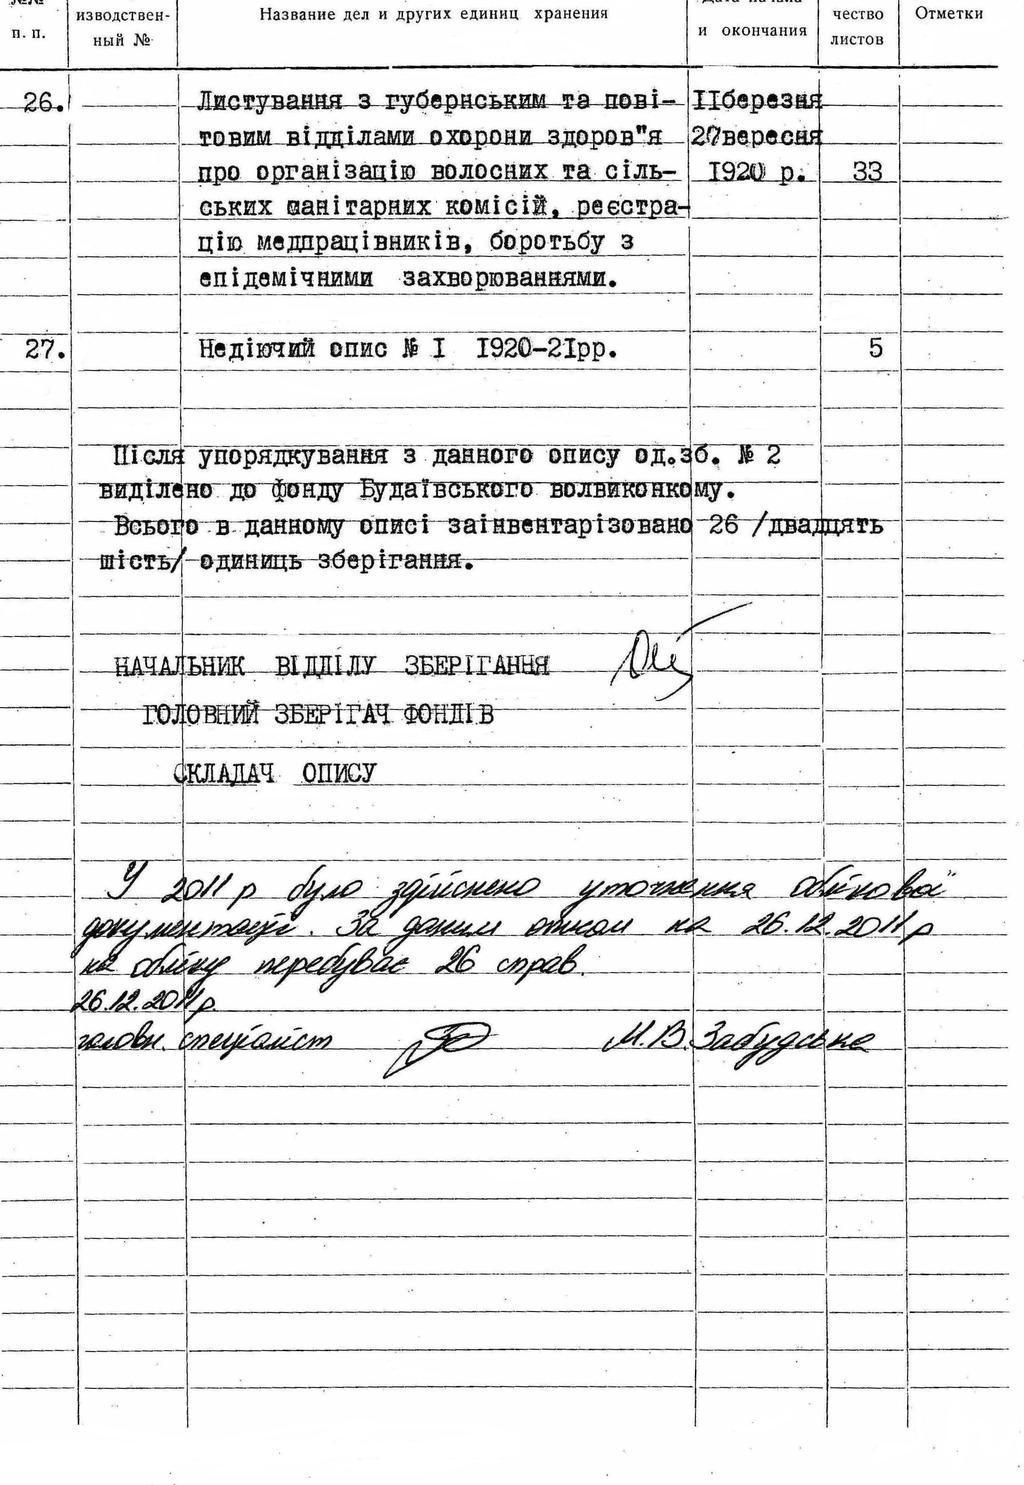 №№ изводствен- Название дел и других единиц хранения Дата начала чество Отметки
п. п. ный № и окончания листов
26. Листування з губернським та пові- IIберезня
товим відділами охорони здоров"я 20вересня
про організацію волосних та сіль- I920 р. 33
ських санітарних комісій, реєстра-
цію медпрацівників, боротьбу з
епідемічними захворюваннями.
27. Недіючий опис № I I920-2Iрр. 5
Після упорядкування з данного опису од.зб. № 2
виділено до фонду Будаївського волвиконкому.
Всього в данному описі заінвентарізовано 26 /двадцять
шість/ одиниць зберігання.
НАЧАЛЬНИК ВІДДІЛУ ЗБЕРІГАННЯ
ГОЛОВНИЙ ЗБЕРІГАЧ ФОНДІВ
СКЛАДАЧ ОПИСУ
У 2011 р було здійснено уточнення облікової
документації. За даним описом на 26.12.2011 р
на обліку перебуває 26 справ.
26.12.2011 р.
головн. спеціаліст М.В. Забудська